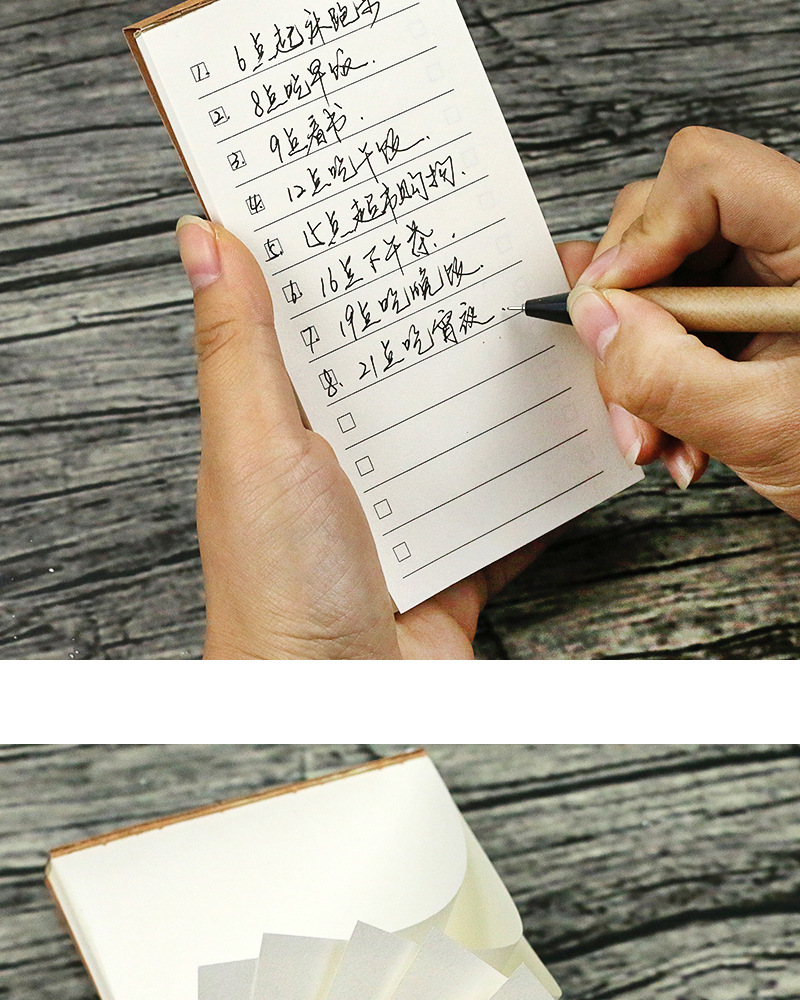 1. 6点起床跑步
2. 8点吃早饭.
3. 9点看书.
4. 12点吃午饭.
5. 15点超市购物.
6. 16点下午茶..
7 19点吃晚饭.
8. 21点吃宵夜.